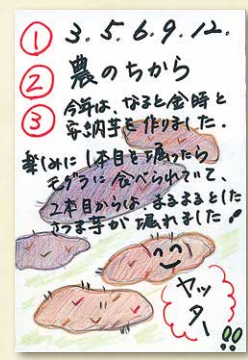 ① 3. 5. 6. 9. 12.
② 農のちから
③ 今年は、なると金時と
安納芋を作りました.
楽しみに1本目を掘ったら
モグラに食べられていて、
2本目からはまるまるとした
さつま芋が掘れました!
ヤッ
ター
!!